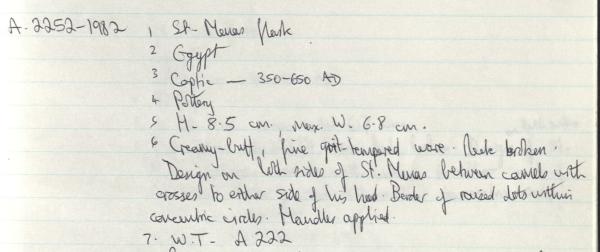 A. 2252-1982 1 St. Menas flask
2 Egypt
3 Coptic — 350-650 AD
4 Pottery
5 H - 8.5 cm., max. W. 6.8 cm.
6 Creamy-buff, fine grit-tempered ware. Neck broken.
Design on both sides of St. Menas between camels with
crosses to either side of his head. Border of raised dots within
concentric circles. Handles applied.
7. W.T - A 222